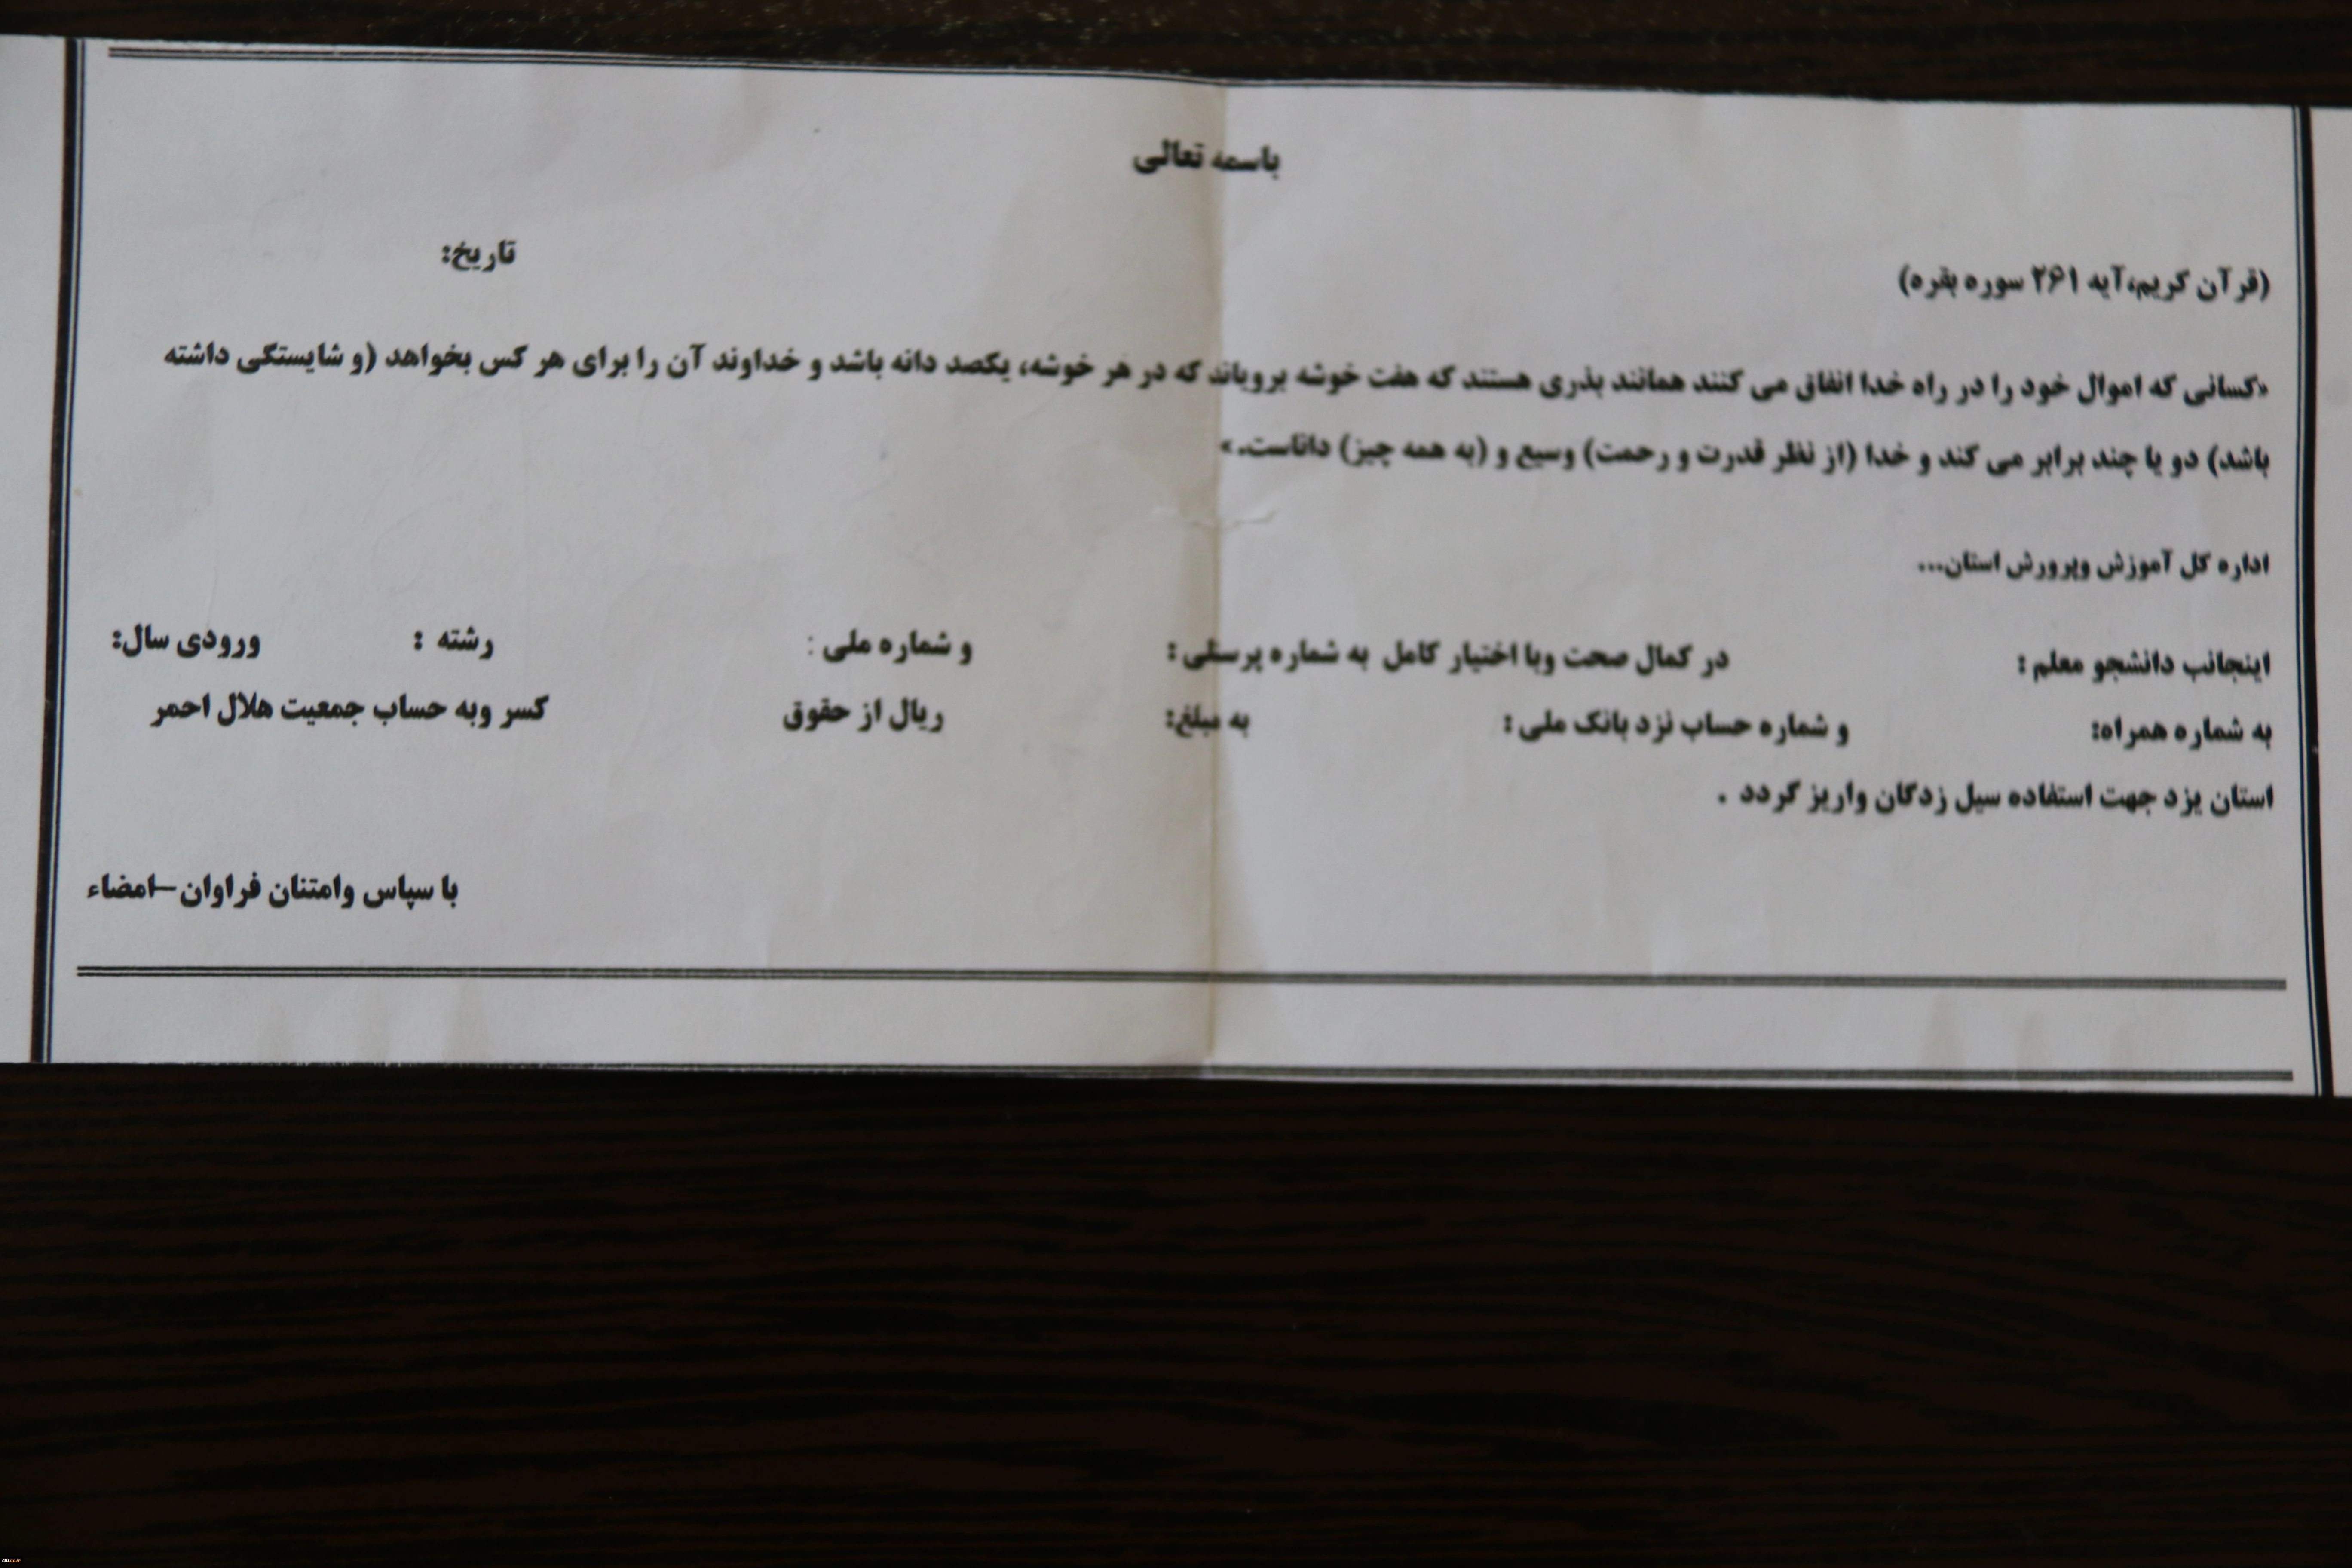 باسمه تعالی
تاریخ:
(قرآن کریم،آیه ۲۶۱ سوره بقره)
«کسانی که اموال خود را در راه خدا انفاق می کنند همانند بذری هستند که هفت خوشه برویاند که در هر خوشه، یکصد دانه باشد و خداوند آن را برای هر کس بخواهد (و شایستگی داشته
باشد) دو یا چند برابر می کند و خدا (از نظر قدرت و رحمت) وسیع و (به همه چیز) داناست.»
اداره کل آموزش وپرورش استان...
اینجانب دانشجو معلم : در کمال صحت وبا اختیار کامل به شماره پرسنلی : و شماره ملی : رشته : ورودی سال:
به شماره همراه: و شماره حساب نزد بانک ملی : به مبلغ: ریال از حقوق کسر وبه حساب جمعیت هلال احمر
استان یزد جهت استفاده سیل زدگان واریز گردد .
با سپاس وامتنان فراوان–امضاء